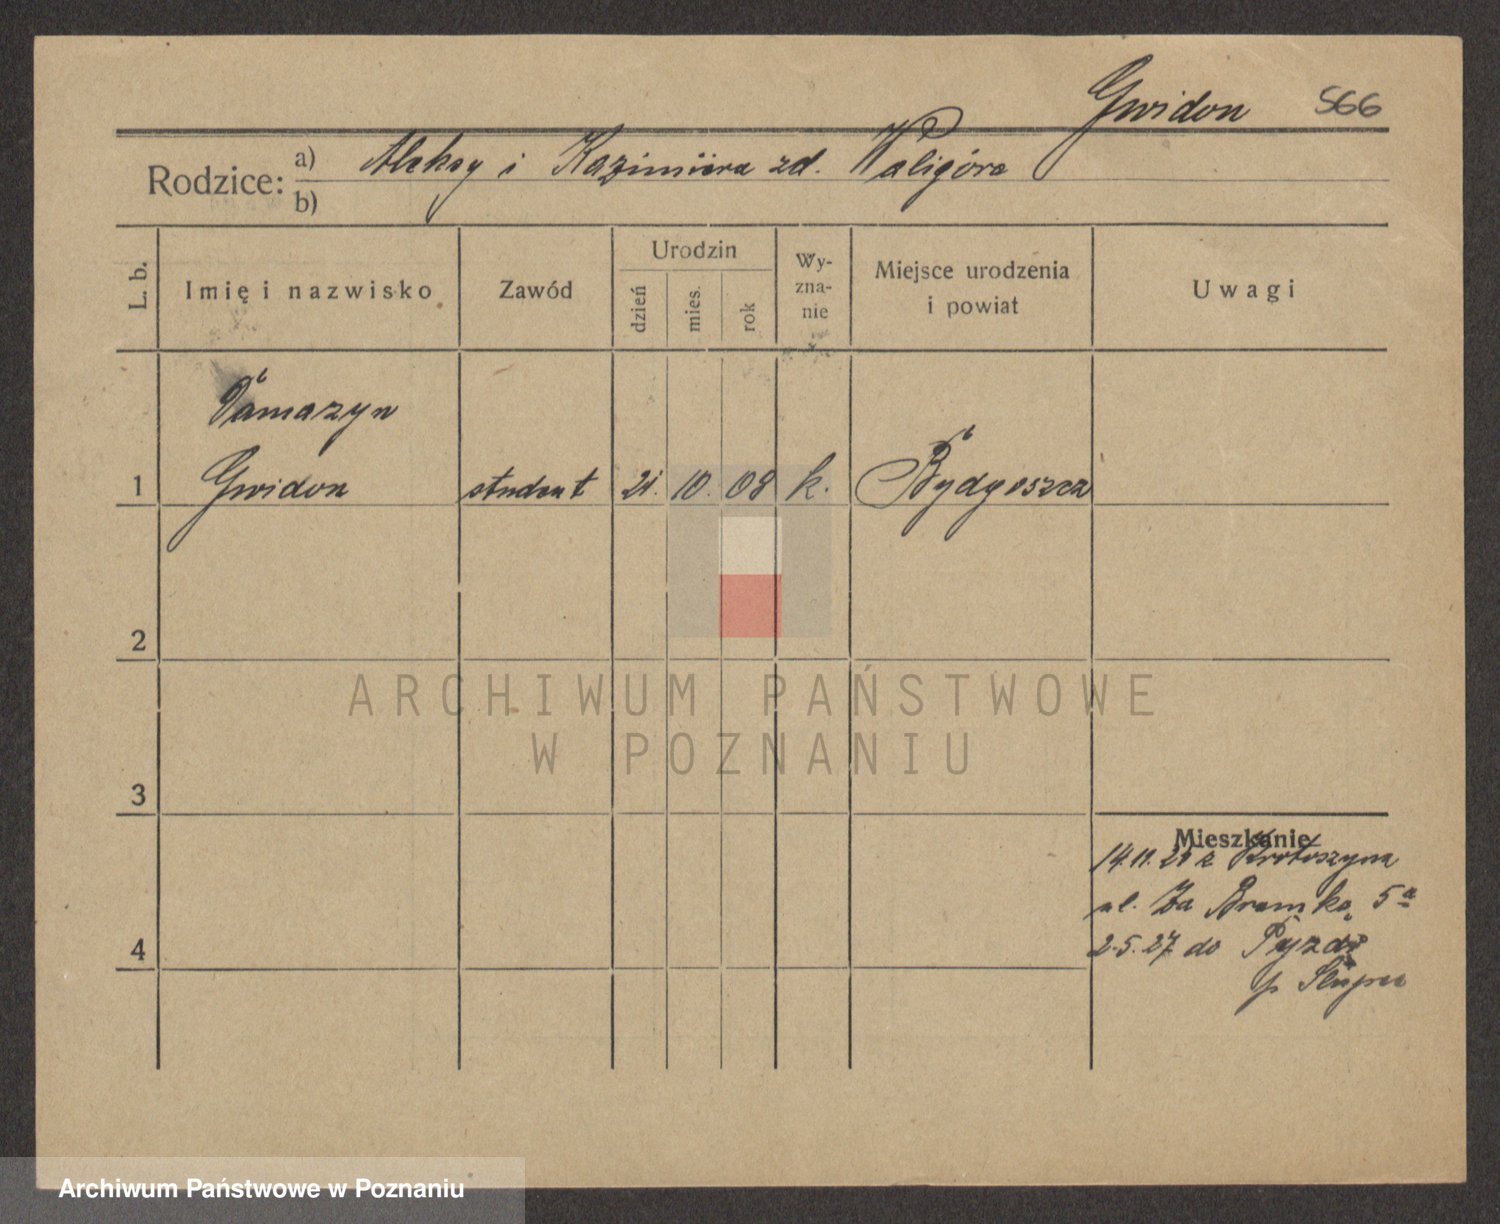 Gwidon 566
Rodzice: a) Aleksy i Kazimiera zd. Waligóra
b)
L. b.
Imię i nazwisko
Zawód
Urodzin
dzień
mies.
rok
Wy-
zna-
nie
Miejsce urodzenia
i powiat
Uwagi
Tamazyn
1 Gwidon student 21. 10. 08 k. Bydgoszcz
2
3
4
Mieszkanie
14.11. z Krotoszyna
ul. Za Bramką 5a
2.5.27 do Pyzdr
p. Słupca
ARCHIWUM PAŃSTWOWE
W POZNANIU
Archiwum Państwowe w Poznaniu